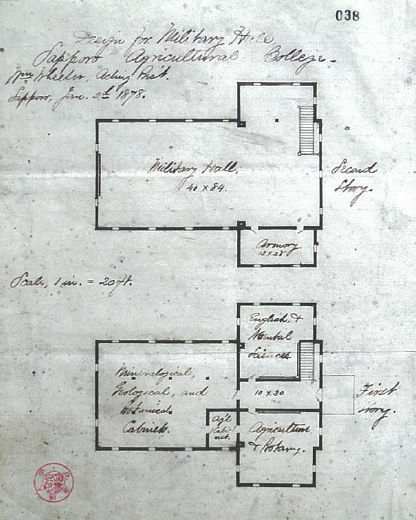 038
Design for Military Hall
Sapporo Agricultural College.
Wm Wheeler, Acting Prest.
Sapporo, Jan. 1878.
Military Hall,
40 x 84.
Second
Story.
Armory
Scale, 1 in. = 20 ft.
English, &
Mental
Sciences
Mineralogical,
Geological, and
Botanical
Cabinet.
10 x 30
First
Story.
Agriculture
& Botany.